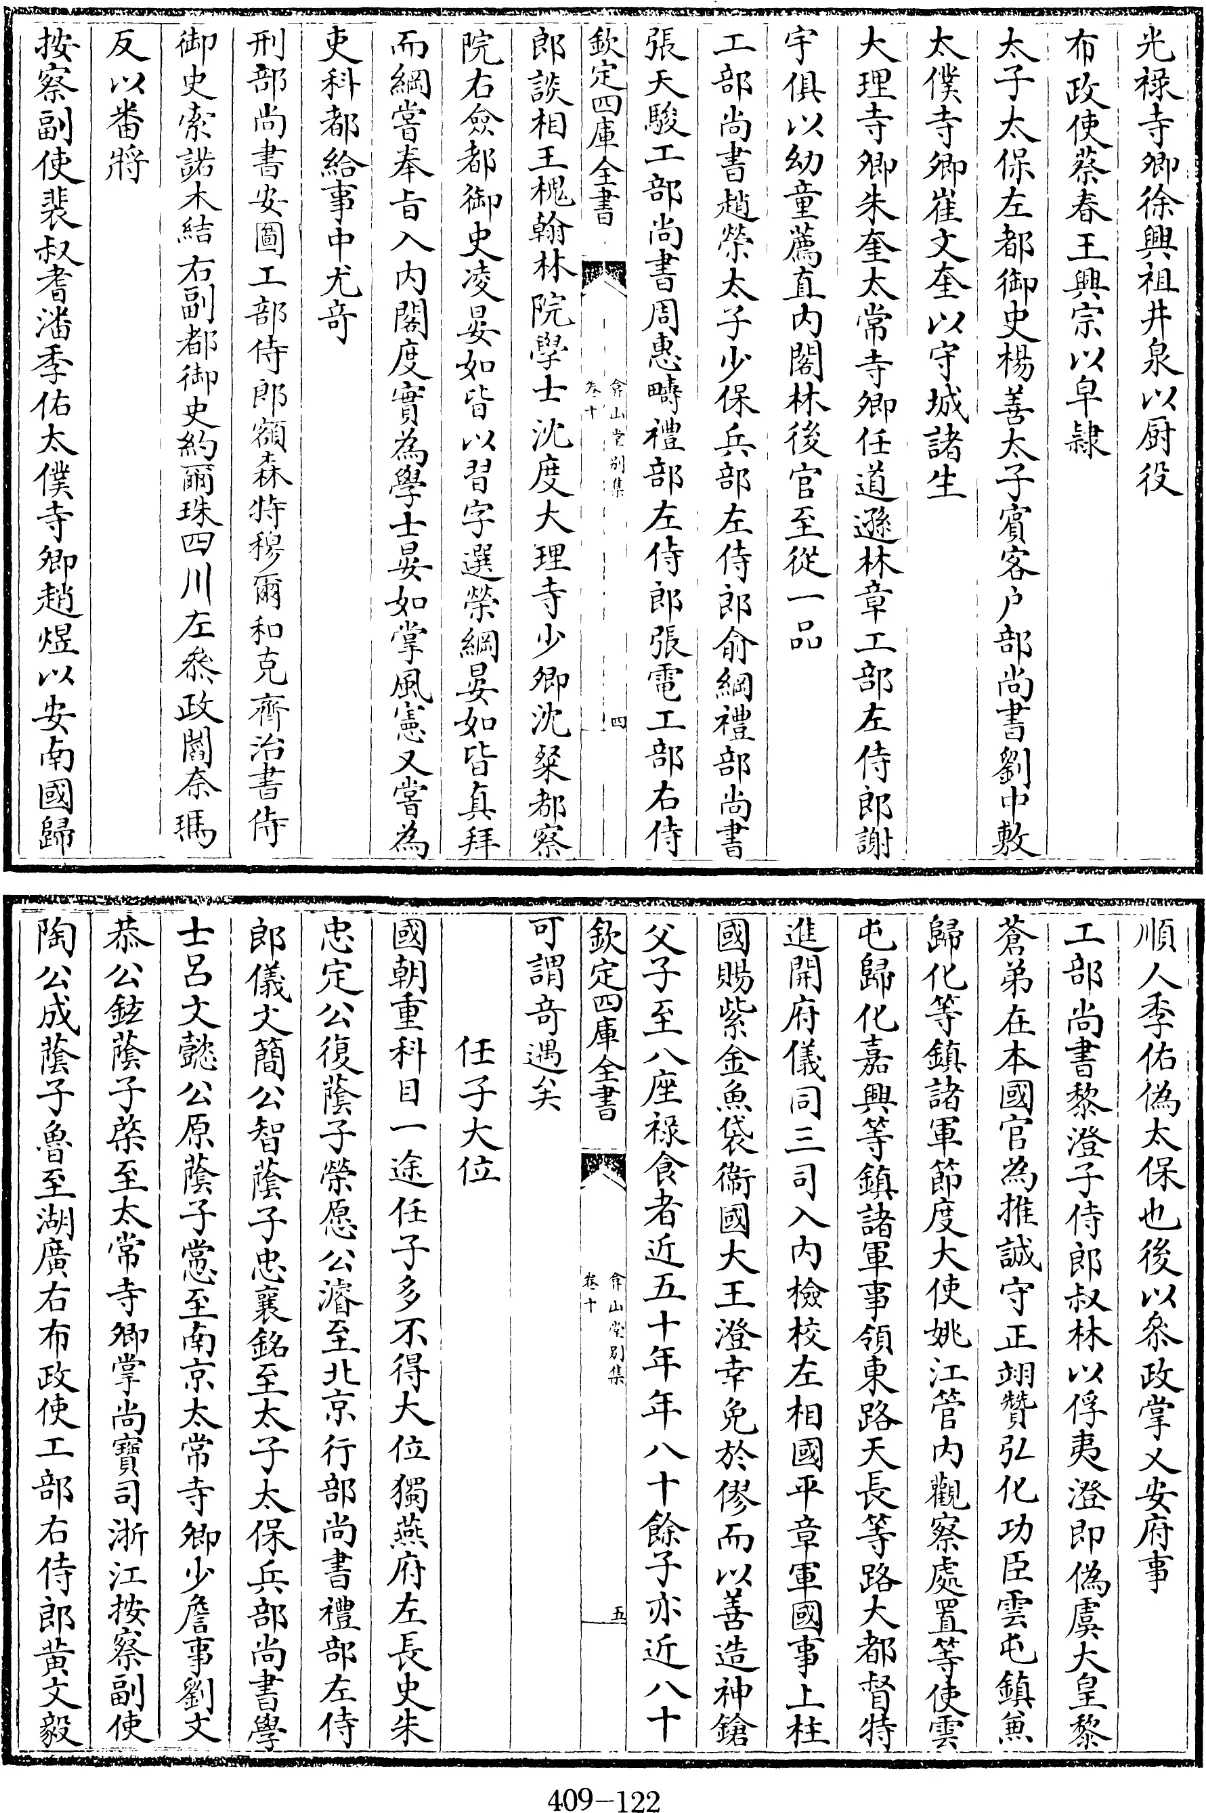 光祿寺卿徐興祖井泉以厨役
布政使蔡春王興宗以皁隸
太子太保左都御史楊善太子賓客户部尚書劉中敷
太僕寺卿崔文奎以守城諸生
大理寺卿朱奎太常寺卿任道遜林章工部左侍郎謝
宇俱以幼童薦直内閣林後官至從一品
工部尚書趙榮太子少保兵部左侍郎俞綱禮部尚書
張天駿工部尚書周惠疇禮部左侍郎張電工部右侍
欽定四庫全書
弇山堂别集
卷十
四
郎談相王槐翰林院學士沈度大理寺少卿沈粲都察
院右僉都御史凌晏如皆以習字選榮綱晏如皆真拜
而綱嘗奉旨入内閣度實為學士晏如掌風憲又嘗為
吏科都給事中尤竒
刑部尚書安圖工部侍郎額森特穆爾和克齊治書侍
御史索諾木結右副都御史約爾珠四川左叅政閻奈瑪
反以畨將
按察副使裴叔耆潘季佑太僕寺卿趙煜以安南國歸
順人季佑偽太保也後以叅政掌乂安府事
工部尚書黎澄子侍郎叔林以俘夷澄即偽虞大皇黎
蒼弟在本國官為推誠守正翊贊弘化功臣雲屯鎮兼
歸化等鎮諸軍節度大使姚江管内觀察處置等使雲
屯歸化嘉興等鎮諸軍事領東路天長等路大都督特
進開府儀同三司入内檢校左相國平章軍國事上柱
國賜紫金魚袋衞國大王澄幸免於僇而以善造神鎗
父子至八座祿食者近五十年年八十餘子亦近八十
欽定四庫全書
弇山堂别集
卷十
五
可謂竒遇矣
任子大位
國朝重科目一途任子多不得大位獨燕府左長史朱
忠定公復䕃子榮愿公濬至北京行部尚書禮部左侍
郎儀文簡公智䕃子忠襄銘至太子太保兵部尚書學
士吕文懿公原䕃子㦂至南京太常寺卿少詹事劉文
恭公鉉䕃子棨至太常寺卿掌尚寶司浙江按察副使
陶公成䕃子魯至湖廣右布政使工部右侍郎黄文毅
409-122